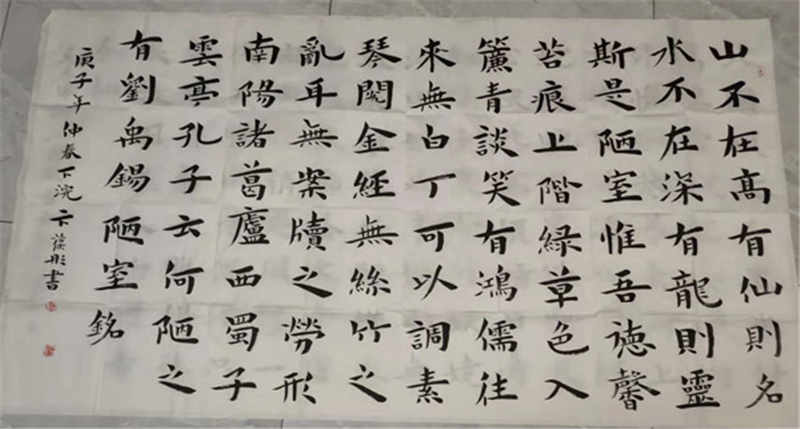 山不在高有仙則名
水不在深有龍則靈
斯是陋室惟吾德馨
苔痕上階綠草色入
簾青談笑有鴻儒往
來無白丁可以調素
琴閱金經無絲竹之
亂耳無案牘之勞形
南陽諸葛廬西蜀子
雲亭孔子云何陋之
有劉禹錫陋室銘
庚子年仲春下浣卞彤書